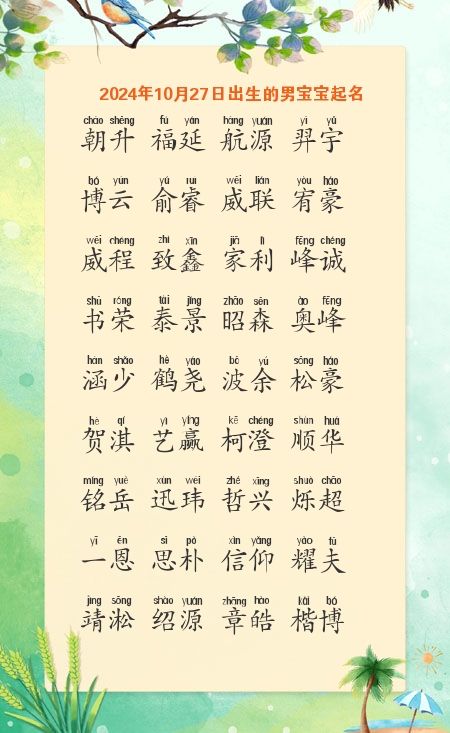 2024年10月27日出生的男宝宝起名
cháo shēng fú yán háng yuán yì yǔ
朝升 福延 航源 羿宇
bó yún yú ruì wēi lián yòu háo
博云 俞睿 威联 宥豪
wēi chéng zhì xīn jiā lì fēng chéng
威程 致鑫 家利 峰诚
shū róng tài jǐng zhāo sēn ào fēng
书荣 泰景 昭森 奥峰
hán shǎo hè yáo bō yú sōng háo
涵少 鹤尧 波余 松豪
hè qí yì yíng kē chéng shùn huá
贺淇 艺赢 柯澄 顺华
míng yuè xùn wěi zhé xīng shuò chāo
铭岳 迅玮 哲兴 烁超
yī ēn sī pǔ xìn yǎng yào fū
一恩 思朴 信仰 耀夫
jìng sōng shào yuán zhāng hào kǎi bó
靖淞 绍源 章皓 楷博